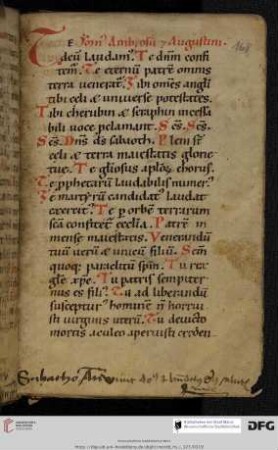 Te deū laudam᷒. Te dnm̄ confi
tem᷒. Te eternū patrē omnis
terra venerat᷒. Tibi om̄es angli
tibi celi & universe potestates.
Tibi cherubin & seraphin incessa
bili voce p̱clamant. Sc̄s. Sc̄s.
Sc̄s. Dn̄s ds̄ sabaoth. Pleni st̄
celi & terra maiestatis glorie
tue. Te gl̄iosus ap̄los chorus.
Te p̱phetarū laudabilis numer᷒.
Te martyrū candidat᷒ laudat
exercit᷒. Te p̱ orbē terrarum
sc̄a confitet᷒ eccl̄ia. Patrē in
mense maiestatis. Venerandū
tuū verū & unicū filiū. Sc̄m
quoq; paraclitū sp̄m. Tu rex
gl̄e xp̄e. Tu patris sempiter
nus es filī᷒. Tu ad liberandū
suscepturꝰ hominē n̄ horrui
sti virginis uterū. Tu devicto
mortis aculeo aperuisti creden
DFG